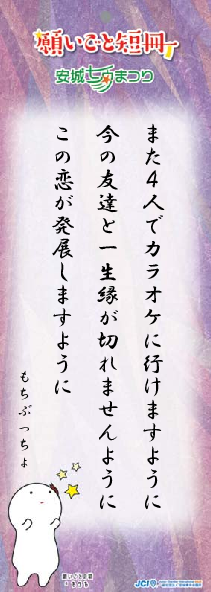 願いごと短冊
安城七夕まつり
また4人でカラオケに行けますように
今の友達と一生縁が切れませんように
この恋が発展しますように
もちぷっちょ
願いごと短冊
JCI